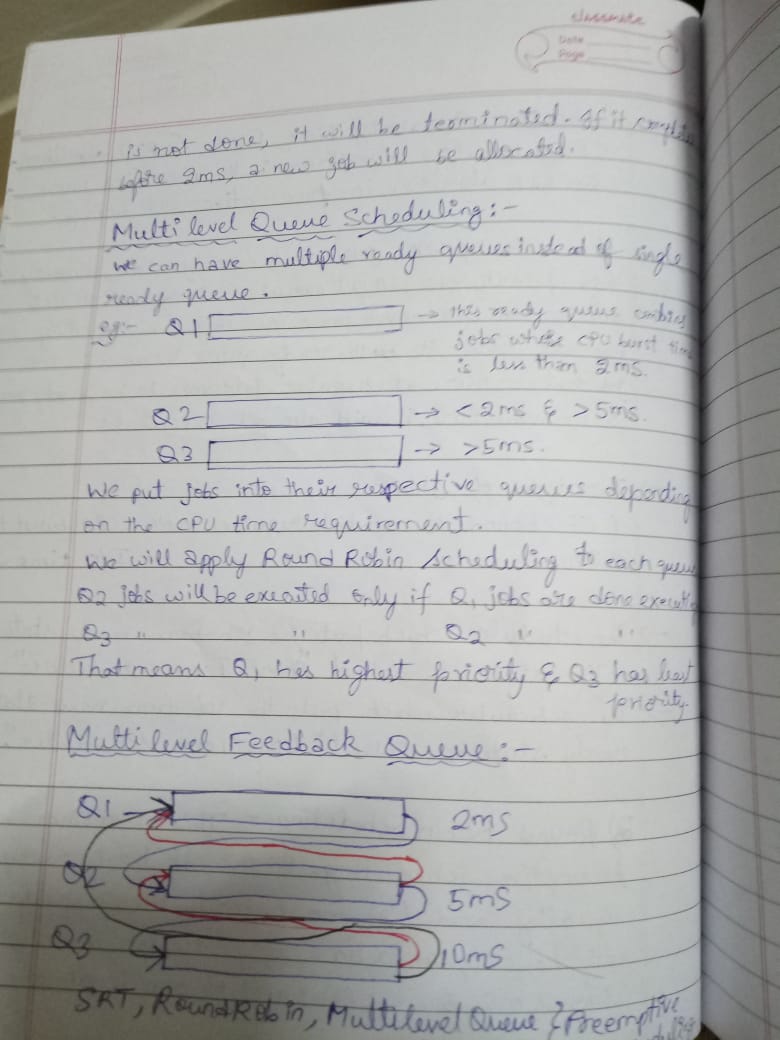 classmate
Date
Page
is not done, it will be terminated. If it
before 2ms, a new job will be allocated.
Multilevel Queue Scheduling:-
We can have multiple ready queues instead of single
ready queue.
eg:- Q1 → this ready queue combins
jobs whose CPU burst time
is less than 2ms.
Q2 → <2ms & >5ms.
Q3 → >5ms.
We put jobs into their respective queues depending
on the CPU time requirement.
We will apply Round Robin Scheduling to each queue
Q2 jobs will be executed only if Q1 jobs are done
Q3 " " Q2 " "
That means Q1 has highest priority & Q3 has least
priority.
Multilevel Feedback Queue:-
Q1 2ms
Q2 5ms
Q3 10ms
SRT, Round Robin, Multilevel Queue } Preemptive